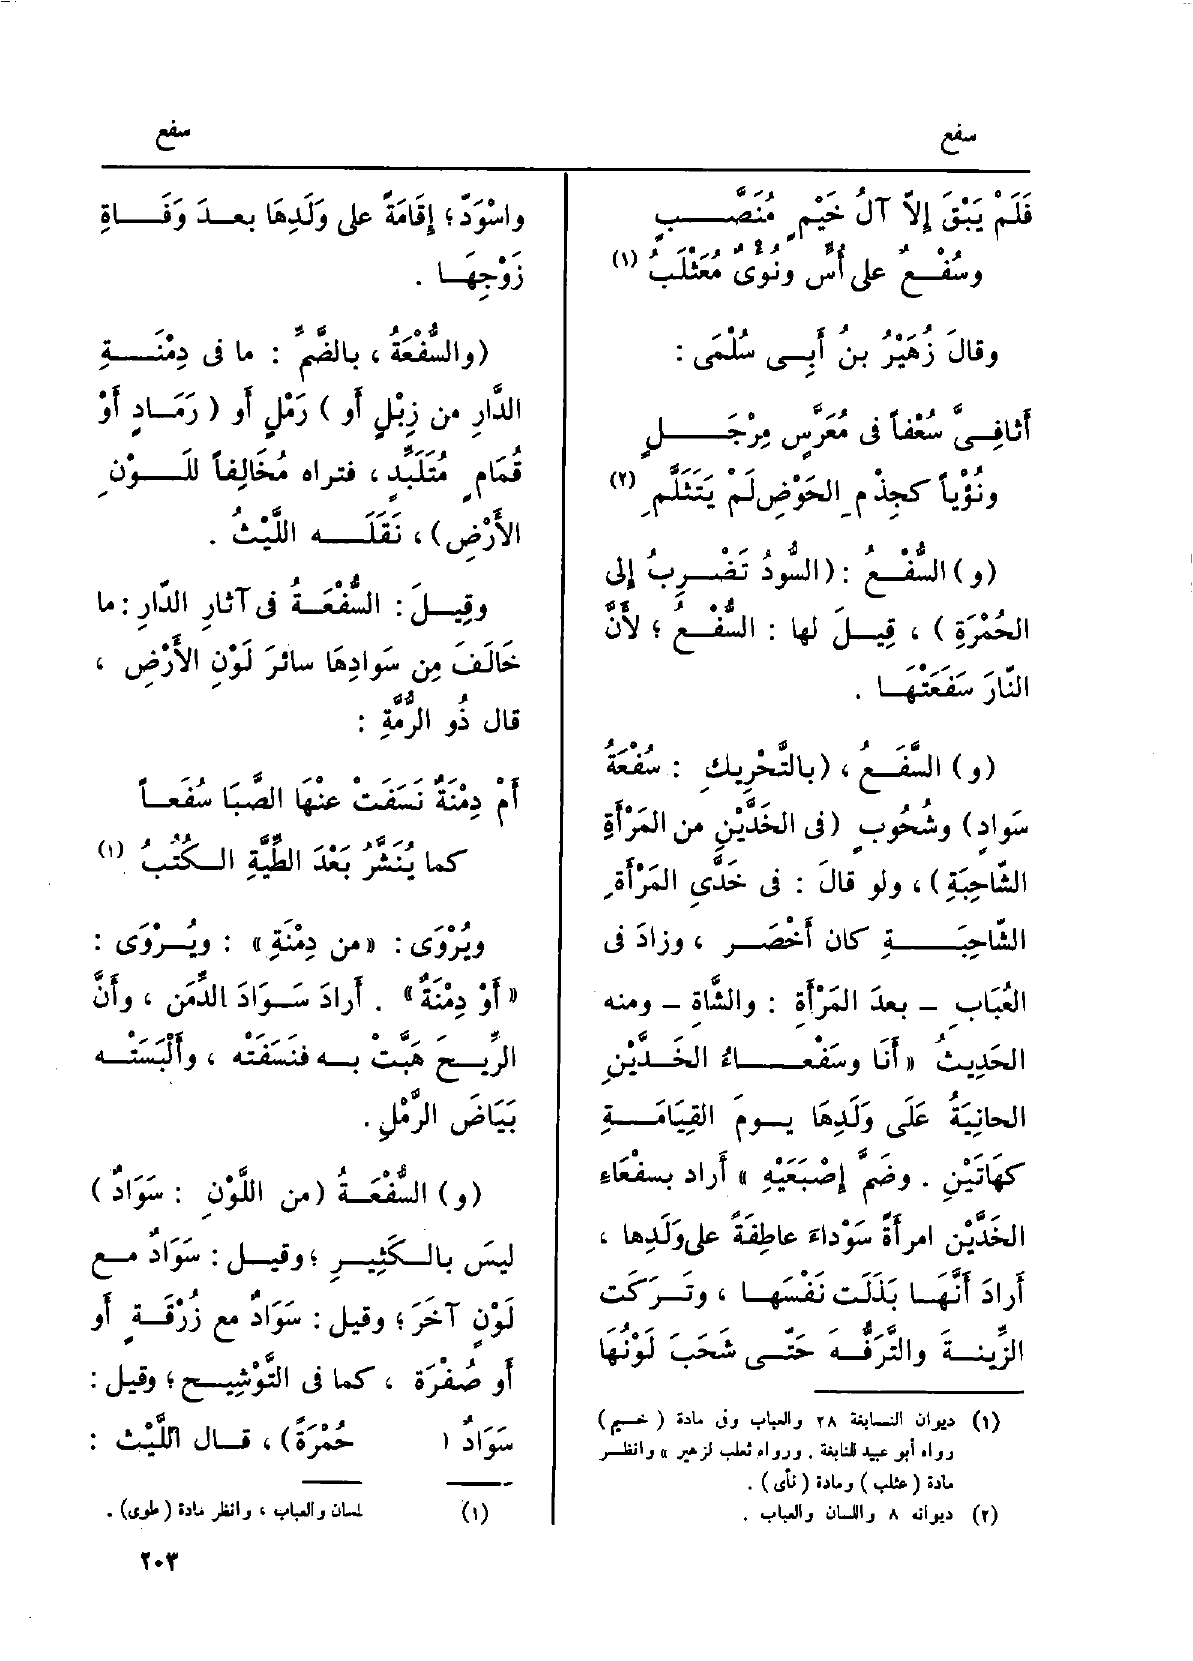 سفع
سفع
فَلَمْ يَبْقَ إِلاَّ آلُ خَيْمٍ مُنَصَّبٍ
وسُفْعٌ على أُسٍّ ونُؤْىٌ مُعَثْلَبُ (١)
وقالَ زُهَيْرُ بنُ أَبِى سُلْمَى :
أَثافِىَّ سُعْفاً فى مُعَرَّسِ مِرْجَلٍ
ونُؤْياً كجِذْمِ الحَوْضِ لَمْ يَتَثَلَّمِ (٢)
(و) السُّفْعُ : (السُّودُ تَضْرِبُ إِلى
الحُمْرَةِ) ، قِيلَ لها : السُّفْعُ ؛ لأَنَّ
النّارَ سَفَعَتْهَا .
(و) السَّفَعُ ، (بالتَّحْرِيكِ : سُفْعَةُ
سَوادٍ) وشُحُوبٍ (فى الخَدَّيْنِ من المَرْأَةِ
الشّاحِبَةِ) ، ولو قالَ : فى خَدَّىِ المَرْأَةِ
الشّاحِبَةِ كان أَخْصَر ، وزادَ فى
العُبَابِ - بعدَ المَرْأَةِ : والشَّاة - ومنه
الحَدِيثُ «أَنَا وسَفْعَاءُ الخَدَّيْنِ
الحانِيَةُ عَلَى وَلَدِهَا يومَ القِيَامَةِ
كهَاتَيْنِ . وضَمَّ إِصْبَعَيْهِ» أَراد بسَفْعَاءِ
الخَدَّيْنِ امرأَةً سَوْداءَ عاطِفَةً على وَلَدِها ،
أَرادَ أَنَّهَا بَذَلَت نَفْسَهَا ، وتَرَكَت
الزِّينةَ والتَّرَفُّهَ حَتّى شَحَبَ لَوْنُهَا
(١) ديوان النابغة ٢٨ والعباب وفى مادة (خيم)
رواه أبو عبيد للنابغة . ورواه ثعلب لزهير » وانظر
مادة (عثلب) ومادة (نأى) .
(٢) ديوانه ٨ واللسان والعباب .
واسْوَدَّ ؛ إِقَامَةً على وَلَدِهَا بعدَ وَفَاةِ
زَوْجِهَا .
(والسُّفْعَةُ ، بالضَّمِّ : ما فى دِمْنَةِ
الدَّارِ من زِبْلٍ أَو) رَمْلٍ أَو (رَمَادٍ أَوْ
قُمَامٍ مُتَلَبِّدٍ ، فتراه مُخَالِفاً للَوْنِ
الأَرْضِ) ، نَقَلَه اللَّيْثُ .
وقِيلَ : السُّفْعَةُ فى آثارِ الدّارِ : ما
خَالَفَ مِن سَوادِهَا سائرَ لَوْنِ الأَرْضِ ،
قال ذُو الرُّمَّةِ :
أَمْ دِمْنَةٌ نَسَفَتْ عنهَا الصَّبَا سُفَعاً
كما يُنَشَّرُ بَعْدَ الطِّيَّةِ الكُتُبُ (١)
ويُرْوَى : «من دِمْنَةٍ» : ويُرْوَى :
«أَوْ دِمْنَةٌ» . أَرادَ سَوَادَ الدِّمَنِ ، وأَنَّ
الرِّيحَ هَبَّتْ به فنَسَفَتْه ، وأَلْبَسَتْه
بَيَاضَ الرَّمْلِ .
(و) السُّفْعَةُ (من اللَّوْنِ : سَوَادٌ)
ليسَ بالكَثِيرِ ؛ وقيل : سَوَادٌ مع
لَوْنٍ آخَرَ ؛ وقيل : سَوَادٌ مع زُرْقَةٍ أَو
أَو صُفْرَة ، كما فى التَّوْشِيحِ ؛ وقيل :
سَوَادٌ ( حُمْرَةً) ، قال اللَّيْثُ :
(١) لسان والعباب ، وانظر مادة (طوى) .
٢٠٣